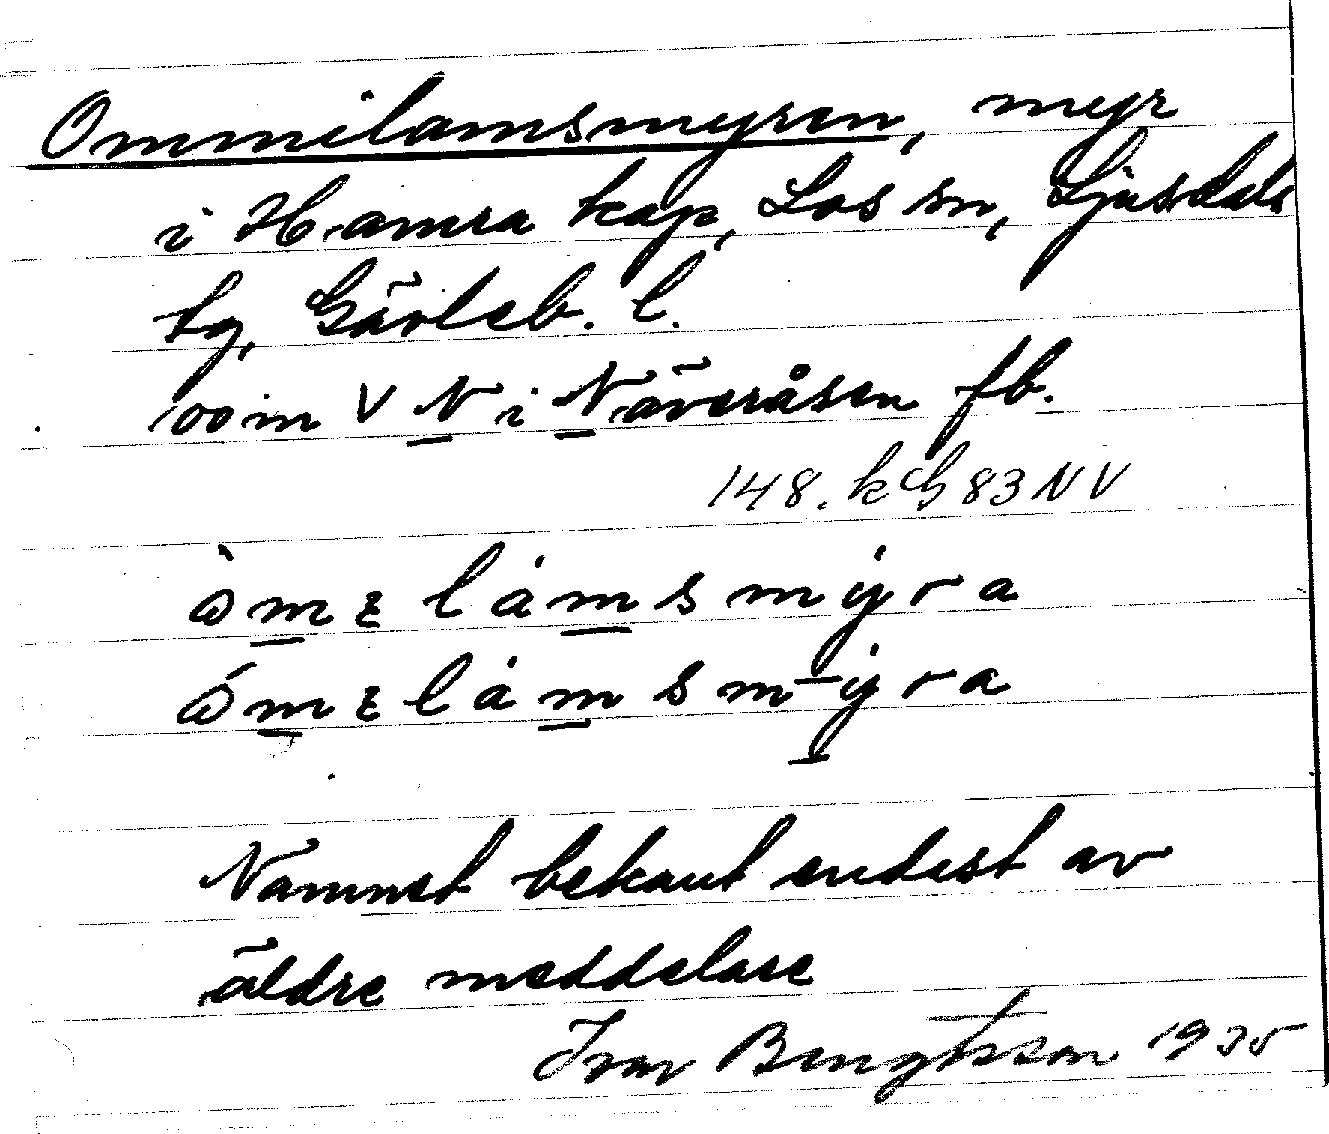 Ommilamsmyren, myr
i Hamra kap, Los sn, Ljusdals
tg, Gävleb. l.
100 m V N i Näveråsen fb.
148. k G 83 NV
ɷ̀mɛlȧmsmẏra
ɷ́mɛlȧmsmẏra
Namnet bekant endast av
äldre meddelare
Ivar Bengtsson 1935